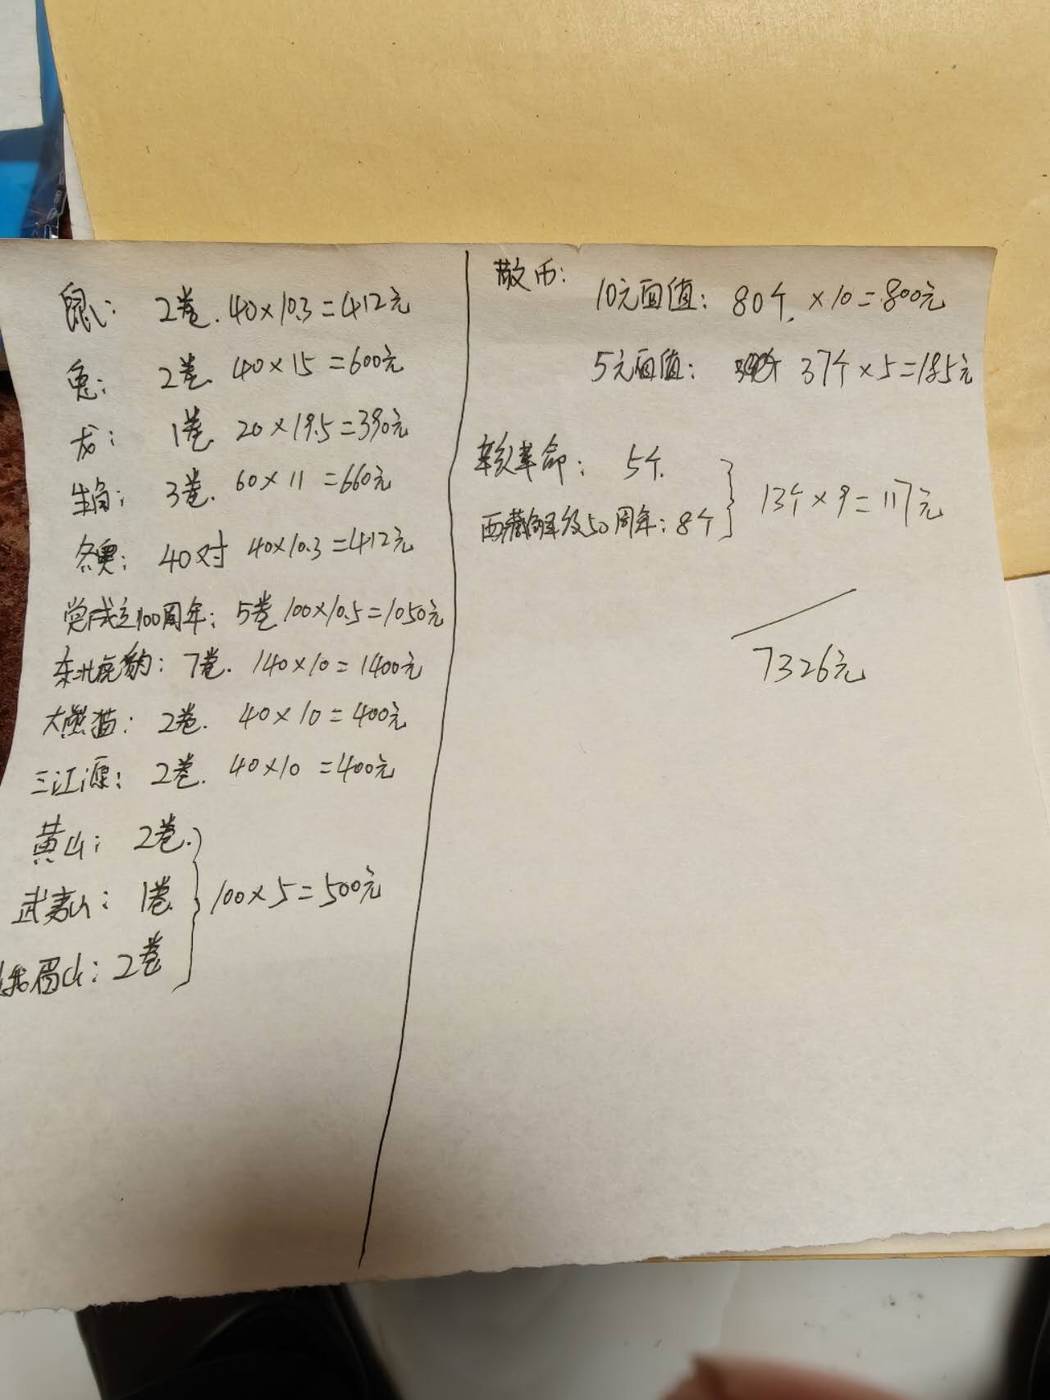 鼠: 2卷. 40×10.3=412元
兔: 2卷 40×15=600元
龙: 1卷 20×19.5=390元
生肖: 3卷. 60×11=660元
冬奥: 40对 40×10.3=412元
党成立100周年: 5卷 100×10.5=1050元
东北虎豹: 7卷. 140×10=1400元
大熊猫: 2卷. 40×10=400元
三江源: 2卷. 40×10=400元
黄山: 2卷.
武夷山: 1卷 100×5=500元
峨眉山: 2卷
散币:
10元面值: 80个. ×10=800元
5元面值: 37个×5=185元
辛亥革命: 5个.
西藏解放50周年: 8个
13个×9=117元
7326元